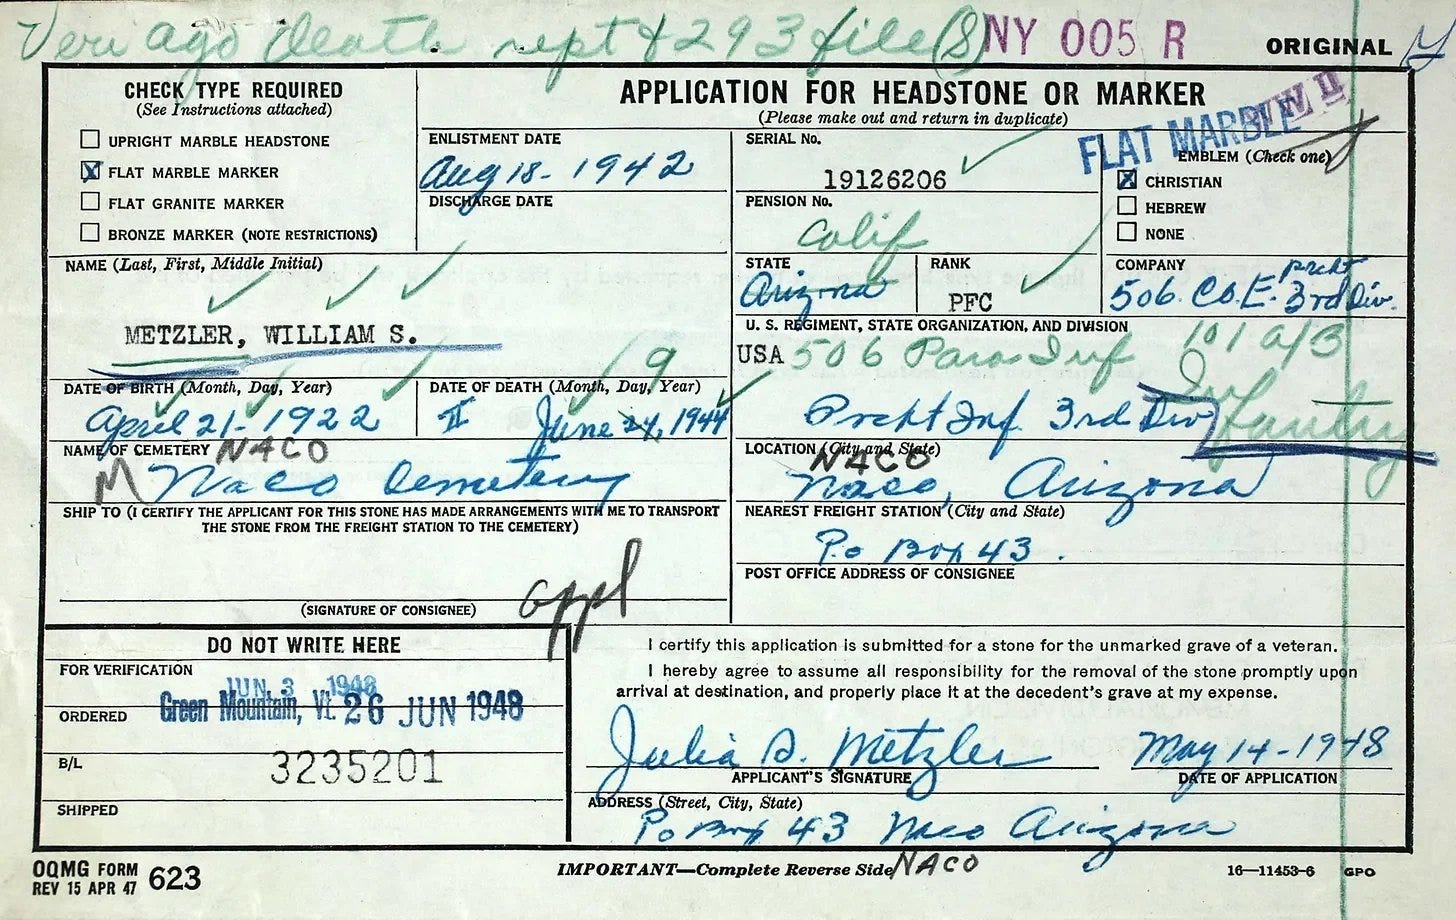 Veri ago death rept & 293 file (S) NY 005 R ORIGINAL
CHECK TYPE REQUIRED
(See Instructions attached)
UPRIGHT MARBLE HEADSTONE
X FLAT MARBLE MARKER
FLAT GRANITE MARKER
BRONZE MARKER (NOTE RESTRICTIONS)
ENLISTMENT DATE
Aug 18 - 1942
DISCHARGE DATE
APPLICATION FOR HEADSTONE OR MARKER
(Please make out and return in duplicate)
WW II
FLAT MARBLE
SERIAL No.
19126206
PENSION No.
Calif
EMBLEM (Check one)
X CHRISTIAN
HEBREW
NONE
NAME (Last, First, Middle Initial)
METZLER, WILLIAM S.
STATE
Arizona
RANK
PFC
COMPANY
prcht
506. Co. E. 3rd Div.
U. S. REGIMENT, STATE ORGANIZATION, AND DIVISION
USA 506 Para Inf 101 a/B
Infantry
Prcht Inf. 3rd Div
DATE OF BIRTH (Month, Day, Year)
April 21 - 1922
DATE OF DEATH (Month, Day, Year)
9
II June 24, 1944
NAME OF CEMETERY NACO
M Naco Cemetery
LOCATION (City and State)
NACO
Naco, Arizona
SHIP TO (I CERTIFY THE APPLICANT FOR THIS STONE HAS MADE ARRANGEMENTS WITH ME TO TRANSPORT
THE STONE FROM THE FREIGHT STATION TO THE CEMETERY)
NEAREST FREIGHT STATION (City and State)
P.o Box 43.
POST OFFICE ADDRESS OF CONSIGNEE
appl
(SIGNATURE OF CONSIGNEE)
DO NOT WRITE HERE
FOR VERIFICATION
JUN 3 1948
ORDERED Green Mountain, Vt. 26 JUN 1948
B/L 3235201
SHIPPED
I certify this application is submitted for a stone for the unmarked grave of a veteran.
I hereby agree to assume all responsibility for the removal of the stone promptly upon
arrival at destination, and properly place it at the decedent's grave at my expense.
Julia S. Metzler May 14 - 1948
APPLICANT'S SIGNATURE DATE OF APPLICATION
ADDRESS (Street, City, State)
Po Box 43 Naco Arizona
OQMG FORM
REV 15 APR 47 623
IMPORTANT—Complete Reverse Side NACO
16—11453-6 GPO